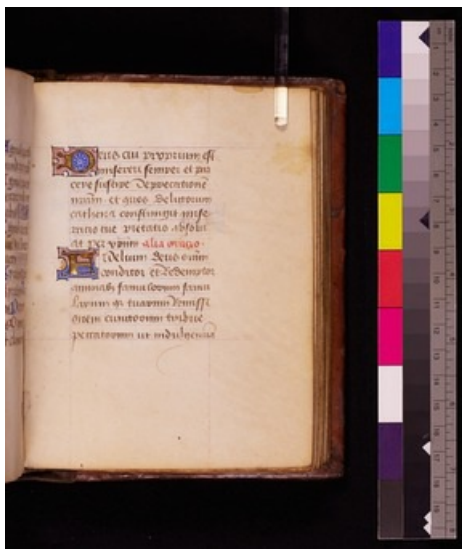 Deus cui proprium est
misereri semper et par
cere suscipe deprecatione
nostram et quos delictorum
cathena constringit mise
ratio tue pietatis absolu
at per xpm alia oratio
Fidelium deus omnium
conditor et redemptor
animabus famulorum famu
larumque tuarum remissi
onem cunctorum tribue
peccatorum ut indulgentia